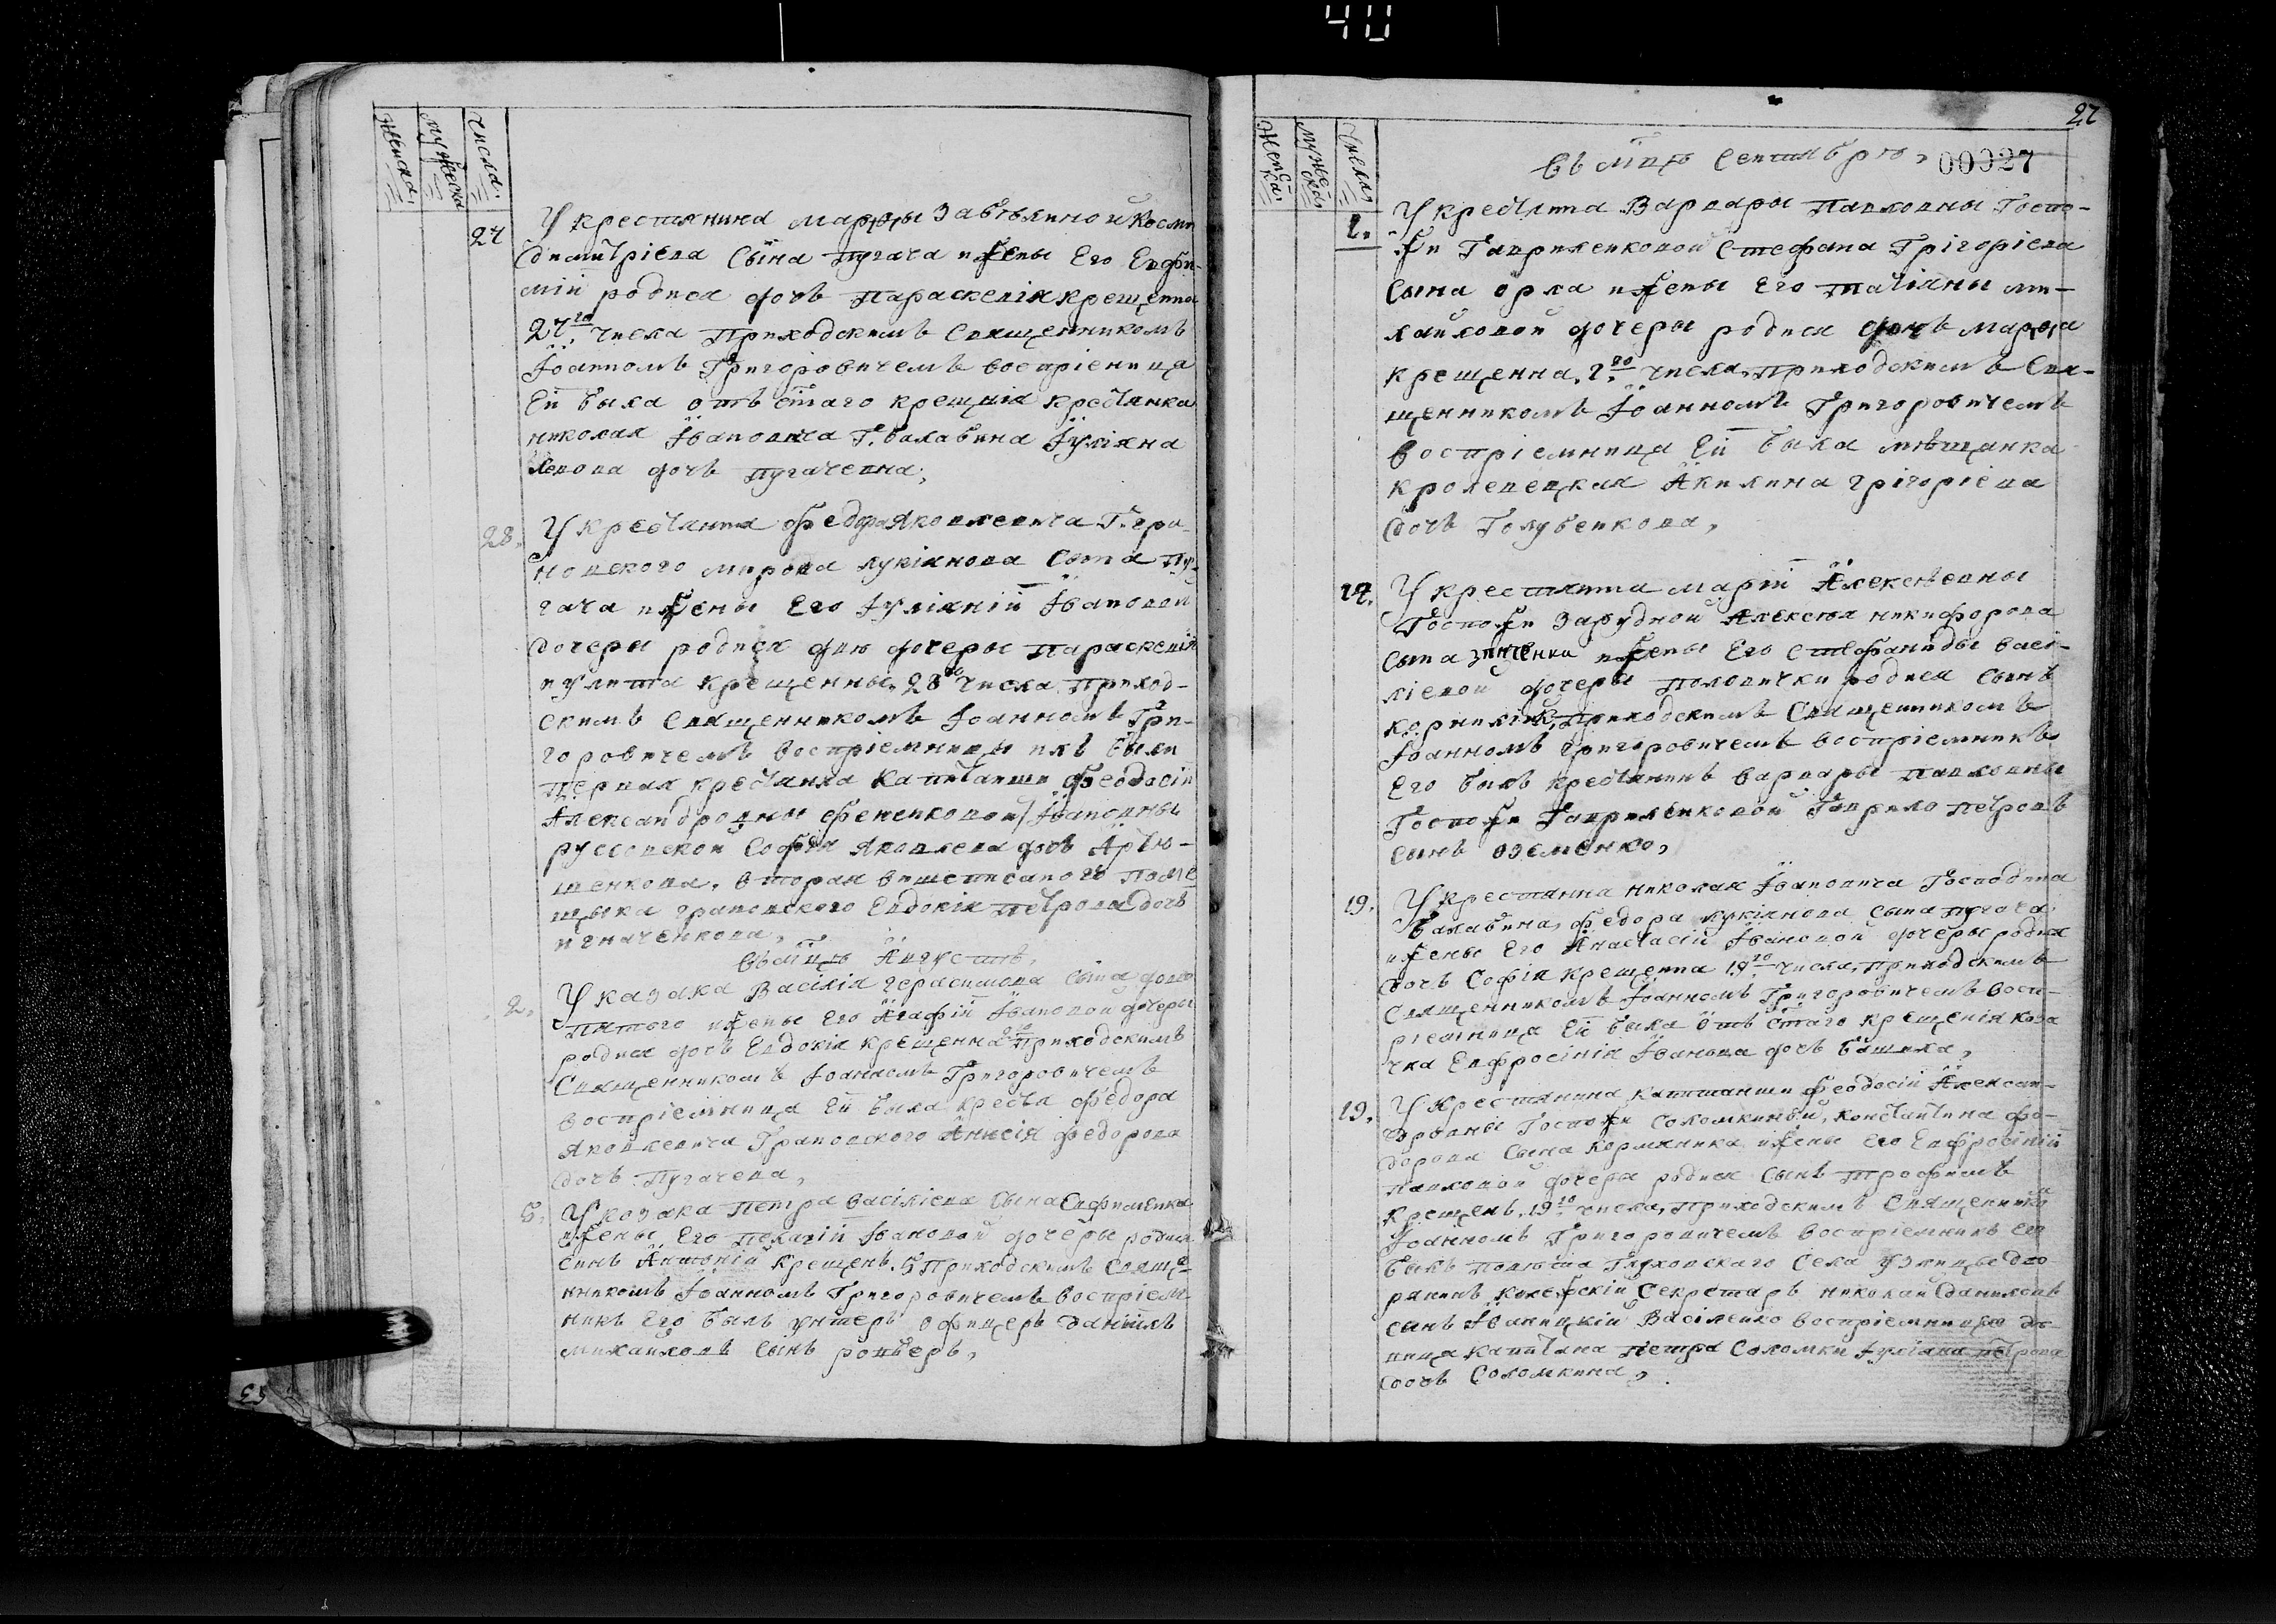 40
Числа.
мужеска
женска.
27
У крестянина марфы Забѣлиной Косми
Димитріева Сына пугача и жены Его Евфи-
міи родися дочь Параскевія крещенна
27го числа Приходскимъ Священникомъ
Іоанномъ Григоровичемъ воспріемница
Ей была отъ стаго крещнія крестянка
николая Івановича Г. балабина Іуліяна
дочь пугачевна,
28.
У крестянина федора Яковлевича Г. гра-
новского мирона лукіянова Сына Пу-
гача и жены Его Іуліяніи Івановой
дочеры родися двѣ дочеры Параскевія
и улита Крещенны. 28го числа Приход-
скимъ Священникомъ Іоанномъ Гри-
горовичемъ воспріемницы ихъ были
первая крестянка Капитанши феодосіи
Александровны Івановны
руссовской Софія Яковлева дочь Артю-
шенкова. вторая вишеписаного поме
щыка грановского Евдокія петрова дочь
игначенкова,
въ мцѣ Августѣ,
2.
У казака Василія герасимова Сына
и жены Его Агафіи Івановой дочеры
родися дочь Евдокія крещенна 2го Приходскимъ
Священникомъ Іоанномъ Григоровичемъ
воспріемница Ей была крестя федора
Яковлевича Грановского Анисія федорова
дочь Пугачева,
5.
У козака Петра василіева Сына Евфименка
и жены Его пелагіи Івановой дочеры родися
Синъ Антоній Крещенъ. 5 Приходскимъ Свяще
нникомъ Іоанномъ Григоровичемъ воспріем-
никъ Его былъ унтеръ офицеръ даніилъ
михайловъ Сынъ
27
00027
Числа
мужеска.
женска.
въ мцѣ Септябрѣ,
2.
У крестянина Варвары Павловны Госпо-
жи Гавриленковой Стефана Грігоріева
Сына орла и жены Его татіяны ми-
хайловой дочеры родися дочь марфа
крещенна. 2го числа, приходскимъ Свя-
щенникомъ Іоанномъ Григоровичемъ
воспріемница Ей была мѣщанка
кролевецкая Акилина грігоріева
дочь Голубенкова,
14.
У крестянина маріи Алексѣевны
Госпожи Зарудной Алексѣя никифорова
Сына зинченка и жены Его Стефаниды васі-
ліевой дочеры родися Сынъ
корнилій, Приходскимъ Священникомъ
Іоанномъ Григоровичемъ воспріемникъ
Его былъ крестянинъ варвары павловны
Госпожи Гавриленковой Гаврило петровъ
Сынъ
19.
У крестянина николая Івановича Господина
балабина, федора лукіянова Сына пугача
и жены Его Анастасіи Івановой дочеры родися
дочь Софія Крещенна 19го числа, приходскимъ
Священникомъ Іоанномъ Григоровичемъ восп-
ріемница Ей была отъ стаго крещенія коза
чка Евфросинія Іванова дочь
19.
У Крестянина капитанши феодосіи Алексан-
дровны Госпожи Соломкиной, константина фе-
дорова Сына и жены Его Евфросініи
павловой дочеры родися Сынъ трофимъ
Крещенъ. 19го числа, Приходскимъ Священнико
Іоанномъ Григоровичемъ воспріемникъ Его
былъ повѣта Глуховского Села дво
ранинъ колежскій Секретарь николай даниловъ
синъ Іваницкій Васіленко воспріемница дѣ-
вица капитана петра Соломки Іуліана петрова
дочь Соломкина,